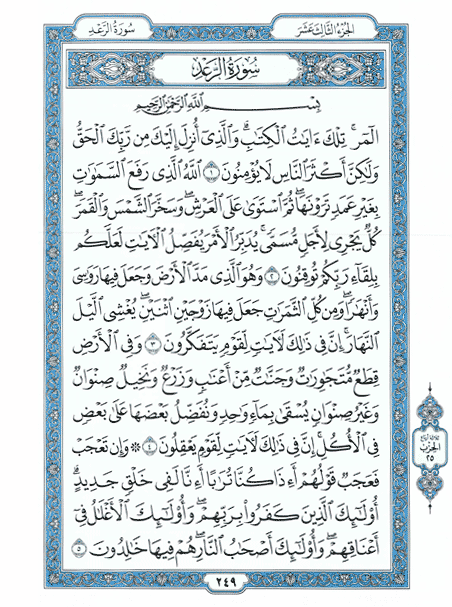 سُورَةُ الرَّعْدِ
الجُزْءُ الثَّالِثَ عَشَرَ
سُورَةُ الرَّعْدِ
بِسْمِ اللَّهِ الرَّحْمَٰنِ الرَّحِيمِ
الٓمٓرۚ تِلْكَ ءَايَٰتُ ٱلْكِتَٰبِۗ وَٱلَّذِىٓ أُنزِلَ إِلَيْكَ مِن رَّبِّكَ ٱلْحَقُّ
وَلَٰكِنَّ أَكْثَرَ ٱلنَّاسِ لَا يُؤْمِنُونَ ١ ٱللَّهُ ٱلَّذِى رَفَعَ ٱلسَّمَٰوَٰتِ
بِغَيْرِ عَمَدٍ تَرَوْنَهَاۖ ثُمَّ ٱسْتَوَىٰ عَلَى ٱلْعَرْشِۖ وَسَخَّرَ ٱلشَّمْسَ وَٱلْقَمَرَۖ
كُلٌّ يَجْرِى لِأَجَلٍ مُّسَمًّىۚ يُدَبِّرُ ٱلْأَمْرَ يُفَصِّلُ ٱلْءَايَٰتِ لَعَلَّكُم
بِلِقَآءِ رَبِّكُمْ تُوقِنُونَ ٢ وَهُوَ ٱلَّذِى مَدَّ ٱلْأَرْضَ وَجَعَلَ فِيهَا رَوَٰسِىَ
وَأَنْهَٰرًاۖ وَمِن كُلِّ ٱلثَّمَرَٰتِ جَعَلَ فِيهَا زَوْجَيْنِ ٱثْنَيْنِۖ يُغْشِى ٱلَّيْلَ
ٱلنَّهَارَۚ إِنَّ فِى ذَٰلِكَ لَءَايَٰتٍ لِّقَوْمٍ يَتَفَكَّرُونَ ٣ وَفِى ٱلْأَرْضِ
قِطَعٌ مُّتَجَٰوِرَٰتٌ وَجَنَّٰتٌ مِّنْ أَعْنَٰبٍ وَزَرْعٌ وَنَخِيلٌ صِنْوَانٌ
وَغَيْرُ صِنْوَانٍ يُسْقَىٰ بِمَآءٍ وَٰحِدٍ وَنُفَضِّلُ بَعْضَهَا عَلَىٰ بَعْضٍ
فِى ٱلْأُكُلِۚ إِنَّ فِى ذَٰلِكَ لَءَايَٰتٍ لِّقَوْمٍ يَعْقِلُونَ ٤ ۞ وَإِن تَعْجَبْ
فَعَجَبٌ قَوْلُهُمْ أَءِذَا كُنَّا تُرَٰبًا أَءِنَّا لَفِى خَلْقٍ جَدِيدٍۗ
أُو۟لَٰٓئِكَ ٱلَّذِينَ كَفَرُوا۟ بِرَبِّهِمْۖ وَأُو۟لَٰٓئِكَ ٱلْأَغْلَٰلُ فِىٓ
أَعْنَاقِهِمْۖ وَأُو۟لَٰٓئِكَ أَصْحَٰبُ ٱلنَّارِۖ هُمْ فِيهَا خَٰلِدُونَ ٥
الحِزْب
٢٥
٢٤٩